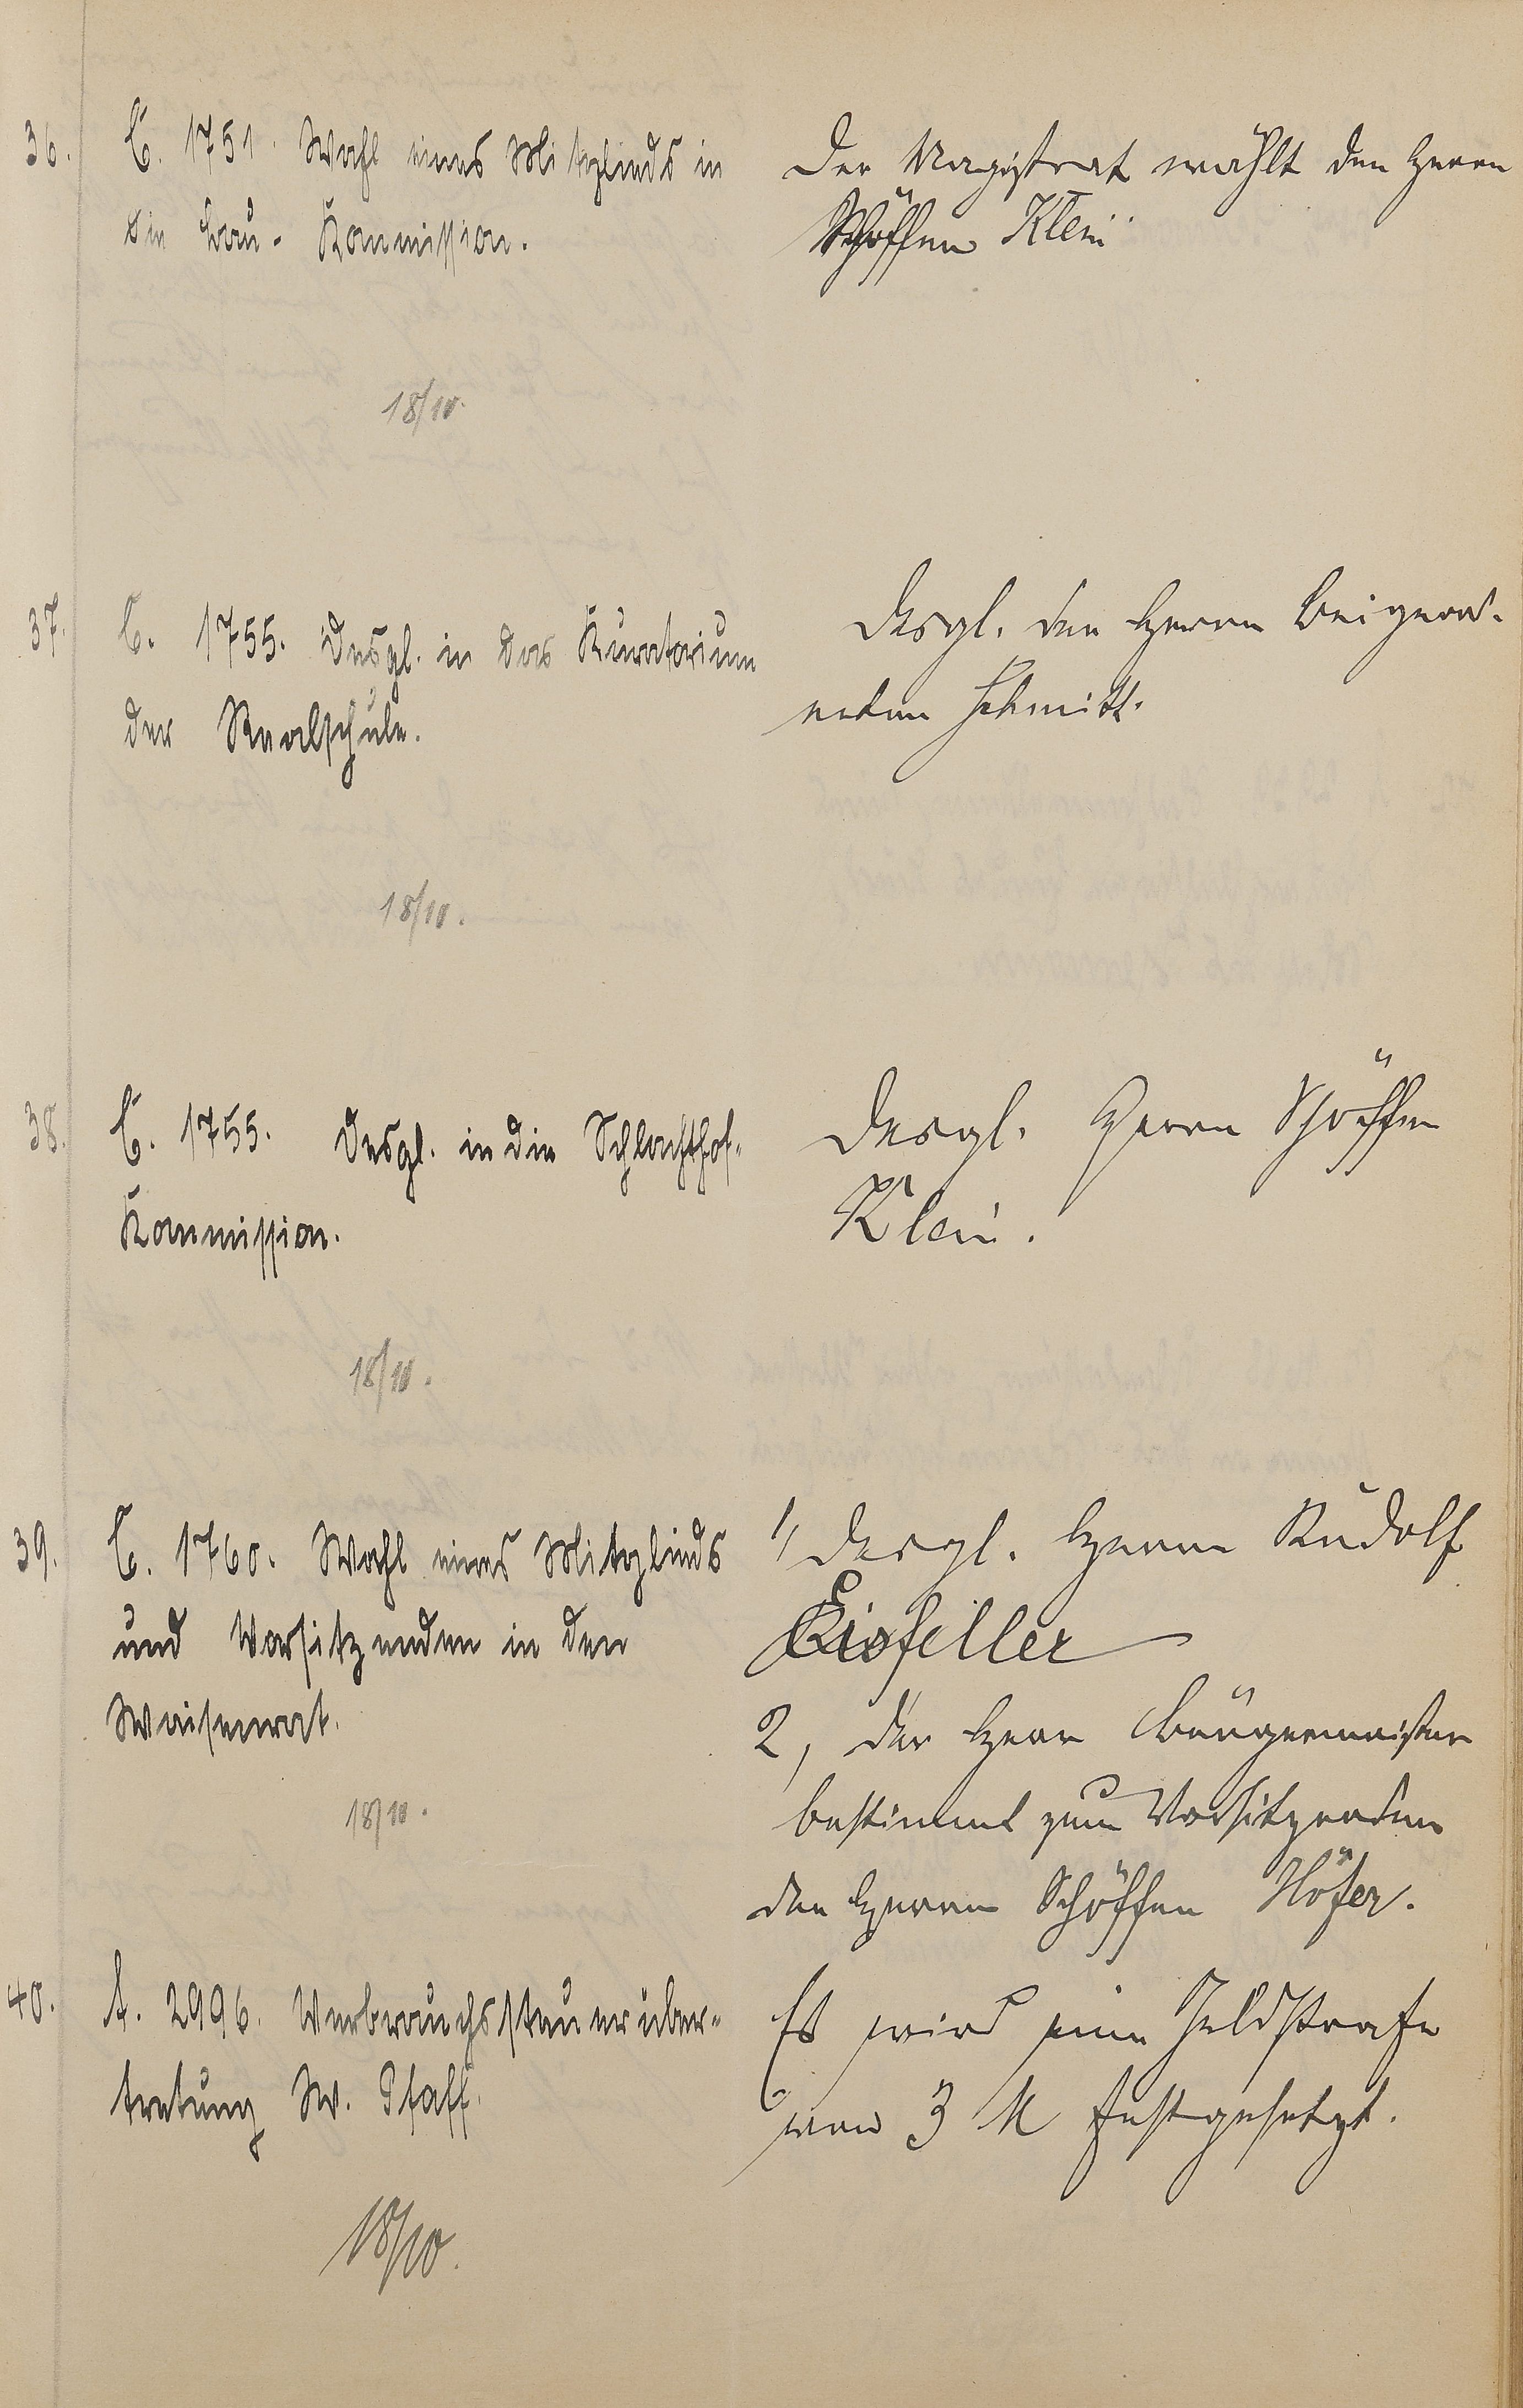 36. C. 1751. Wahl eines Mitglieds in
die Bau-Kommission.
Der Magistrat wählt den Herrn
Schöffen Klein
18/10.
37. C. 1755. Desgl. in das Kuratorium
der Realschule.
Desgl. den Herrn Beigeord-
neten Schmitt.
18/10.
38. C. 1755. Desgl. in die Schlachthof-
Kommission.
Desgl. Herrn Schöffen
Klein.
18/10.
39. C. 1760. Wahl eines Mitglieds
und Vorsitzenden in den
Waisenrat.
1, Desgl. Herrn Rudolf
Eisfeller
2, Der Herr Bürgermeister
bestimmt zum Vorsitzenden
den Herrn Schöffen Höfer.
18/10.
40. A. 2996. Verbrauchssteuerüber-
tretung W. Pfaff.
Es wird eine Geldstrafe
von 3 M festgesetzt.
18/10.